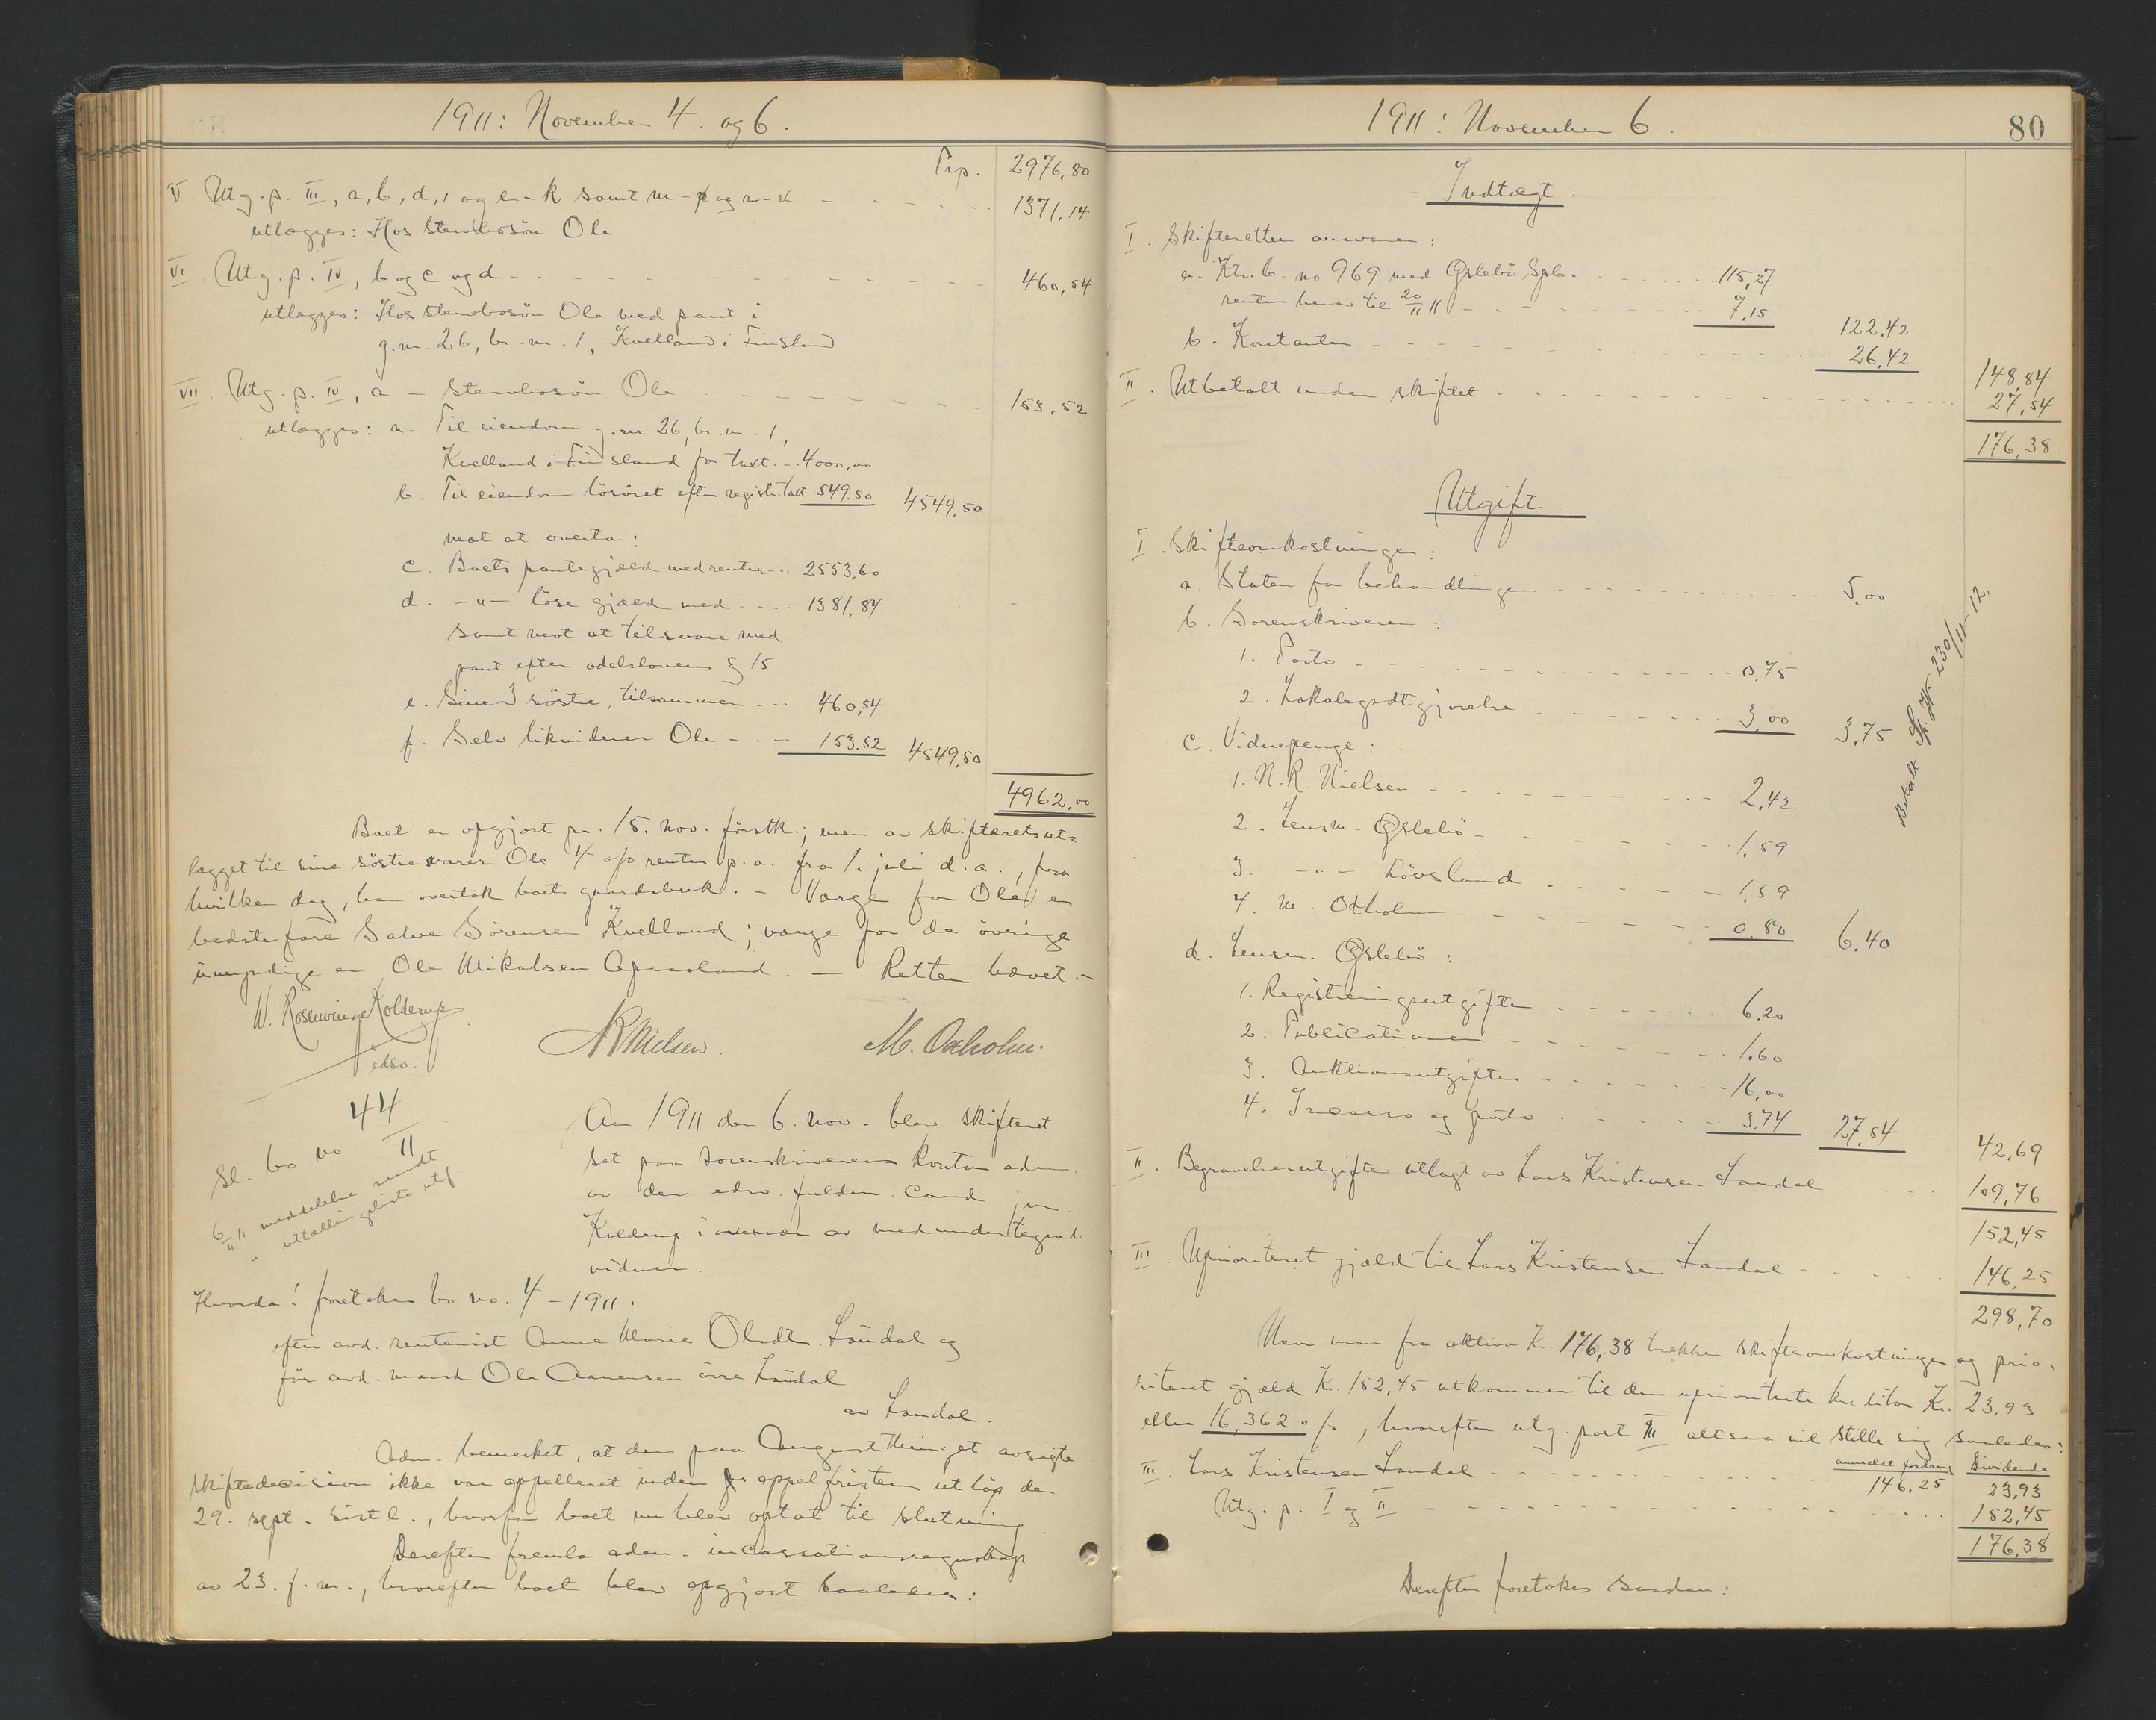 1911: November 4. og 6.
Trp. 2976,80
V. Utg. p. III, a, b, d, 1 og e - k samt m - p og r - v 1371,14
utlægges: Hos stervbosön Ole
VI. Utg. p. IV, b og c og d 460,54
utlægges: Hos stervbosön Ole med pant i
g. nr. 26, br. nr. 1, Kvelland i Finsland
VII. Utg. p. IV, a - stervbosön Ole 153,52
utlægges: a. Til eiendom g. nr 26, br. nr. 1,
Kvelland i Finsland for taxt. 4000,00
b. Til eiendom lösöret efter registr. taxt 549.50 4549,50
mot at overta:
c. Boets pantegjæld med renter 2553,60
d. -"- löse gjæld med 1381,84
samt mot at tilsvare med
pant efter odelslovens § 15
e. Sine 3 söstre, tilsammen 460,54
f. Selv likviderer Ole 153.52 4549,50
4962,00
Boet er opgjort pr. 15. nov. förstk.; men av skifteretsut=
lægget til sine söstre svarer Ole 4 o/o renter p. a. fra 1. juli d. a., fra
hvilken dag, han overtok boets gaardsbruk. - Værge for Ole er
bedstefare Salve Sörensen Kvelland; værge for de övrige
umyndige er Ole Mikalsen Aprasland. - Retten hævet. -
W. Rosenvinge Kolderup
edsv.
NR Nielsen. M. Oxholm.
44
Sl. bo no II
6/11 11 meddelelse sendt
" uttællingsliste utf
Aar 1911 den 6. nov. blev skifteret
sat paa sorenskriverens kontor adm.
av den edsv. fuldm. cand. jur.
Kolderup i overvær av medundertegnede
vidner.
Hvorda! foretokes bo no. 4 - 1911:
efter avd. rentenist Anne Marie Olsdt. Laudal og
för avd. mand Ole Aanensen övre Laudal
av Laudal.
Adm. bemerket, at den paa Augustthinget avsagte
skiftedecision ikke var appelleret inden appelfristens utløp den
29. sept. sistl., hvorfor boet nu blev optat til slutning.
Derefter fremla adm. incassationsregnskap
av 23. f. m., hvorefter boet blev opgjort saaledes:
1911: November 6.
80
Indtægt.
I. Skifteretten ansvarer:
a. Ktr. b. no 969 med Øslebö Spb. 115,27
renter herav til 20/11 11 7.15 122.42
b. Kontanter 26,42 148,84
II. Utbetalt under skiftet 27,54
176,38
Utgift
I. Skifteomkostninger:
a. Staten for behandlingen 5,00
b. Sorenskriveren:
1. Porto 0,75
2. Lokalegodtgjørelse 3,00 3,75
c. Vidnepenge:
1. N. R. Nielsen 2,42
2. Lensm. Øslebö 1,59
3. -"- Lövsland 1,59
4. M. Oxholm 0,80 6.40
d. Lensm. Øslebö:
1. Registreringsutgifter 6.20
2. Publicationer 1.60
3. Auktionsutgifter 16,00
4. Incasso og porto 3.74 27,54 42,69
Betalt 230/11-12
II. Begravelsesutgifter utlagt av Lars Kristensen Laudal 109,76
152,45
III. Uprioriteret gjæld til Lars Kristensen Laudal 146,25
298,70
Naar man fra aktiva Kr. 176,38 trækker skifteomkostninger og prio=
riteret gjæld Kr. 152,45 utkommer til den uprioriterte kreditor Kr. 23,93
eller 16,362 o/o, hvorefter utg. post III altsaa vil stille sig saaledes:
anmeldt fordring Dividende
III. Lars Kristensen Laudal 146,25 23,93
Utg. p. I og II 152,45
176,38
Derefter foretokes saadan: